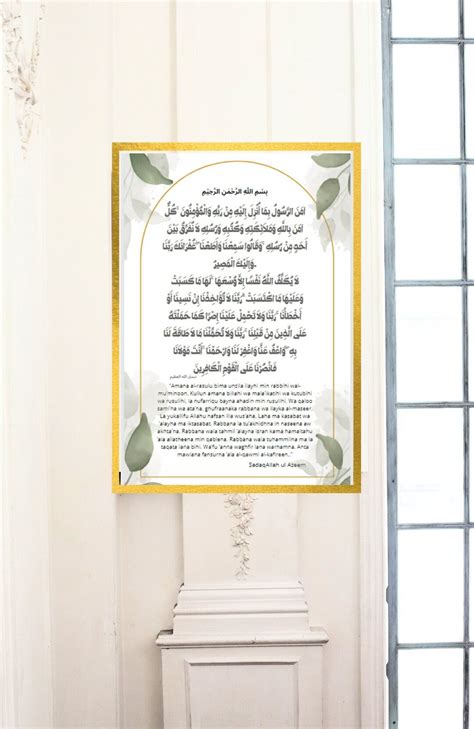 بِسْمِ اللَّهِ الرَّحْمَنِ الرَّحِيْمِ
آمَنَ الرَّسُولُ بِمَا أُنْزِلَ إِلَيْهِ مِنْ رَبِّهِ وَالْمُؤْمِنُونَ ۚ كُلٌّ
آمَنَ بِاللَّهِ وَمَلَائِكَتِهِ وَكُتُبِهِ وَرُسُلِهِ لَا نُفَرِّقُ بَيْنَ
أَحَدٍ مِنْ رُسُلِهِ ۚ وَقَالُوا سَمِعْنَا وَأَطَعْنَا ۖ غُفْرَانَكَ رَبَّنَا
وَإِلَيْكَ الْمَصِيرُ.
لَا يُكَلِّفُ اللَّهُ نَفْسًا إِلَّا وُسْعَهَا ۚ لَهَا مَا كَسَبَتْ
وَعَلَيْهَا مَا اكْتَسَبَتْ ۗ رَبَّنَا لَا تُؤَاخِذْنَا إِنْ نَسِينَا أَوْ
أَخْطَأْنَا ۚ رَبَّنَا وَلَا تَحْمِلْ عَلَيْنَا إِصْرًا كَمَا حَمَلْتَهُ
عَلَى الَّذِينَ مِنْ قَبْلِنَا ۚ رَبَّنَا وَلَا تُحَمِّلْنَا مَا لَا طَاقَةَ لَنَا
بِهِ ۖ وَاعْفُ عَنَّا وَاغْفِرْ لَنَا وَارْحَمْنَا ۚ أَنْتَ مَوْلَانَا
فَانْصُرْنَا عَلَى الْقَوْمِ الْكَافِرِينَ
صدق الله العظيم
"Amana al-rasulu bima unzila ilayhi min rabbihi wal-
mu'minoon, Kullun amana billahi wa mala'ikatihi wa kutubihi
wa rusulihi, la nufarriqu bayna ahadin mir rusulihi, Wa qaloo
sami'na wa ata'na, ghufraanaka rabbana wa ilayka al-maseer.
"La yukallifu Allahu nafsan illa wus'aha, Lana ma kasabat wa
'alayha ma iktasabat. Rabbana la tu'akhidhna in naseena aw
akhta'na. Rabbana wala tahmil 'alayna isran kama hamaltahu
'ala allatheena min qablena. Rabbana wala tuhammilna ma la
taqata lana bihi. Waffu 'anna waghfir lana warhamna. Anta
mawlana fansurna 'ala al-qawmi al-kafireen."
SadaqAllah ul Azeem